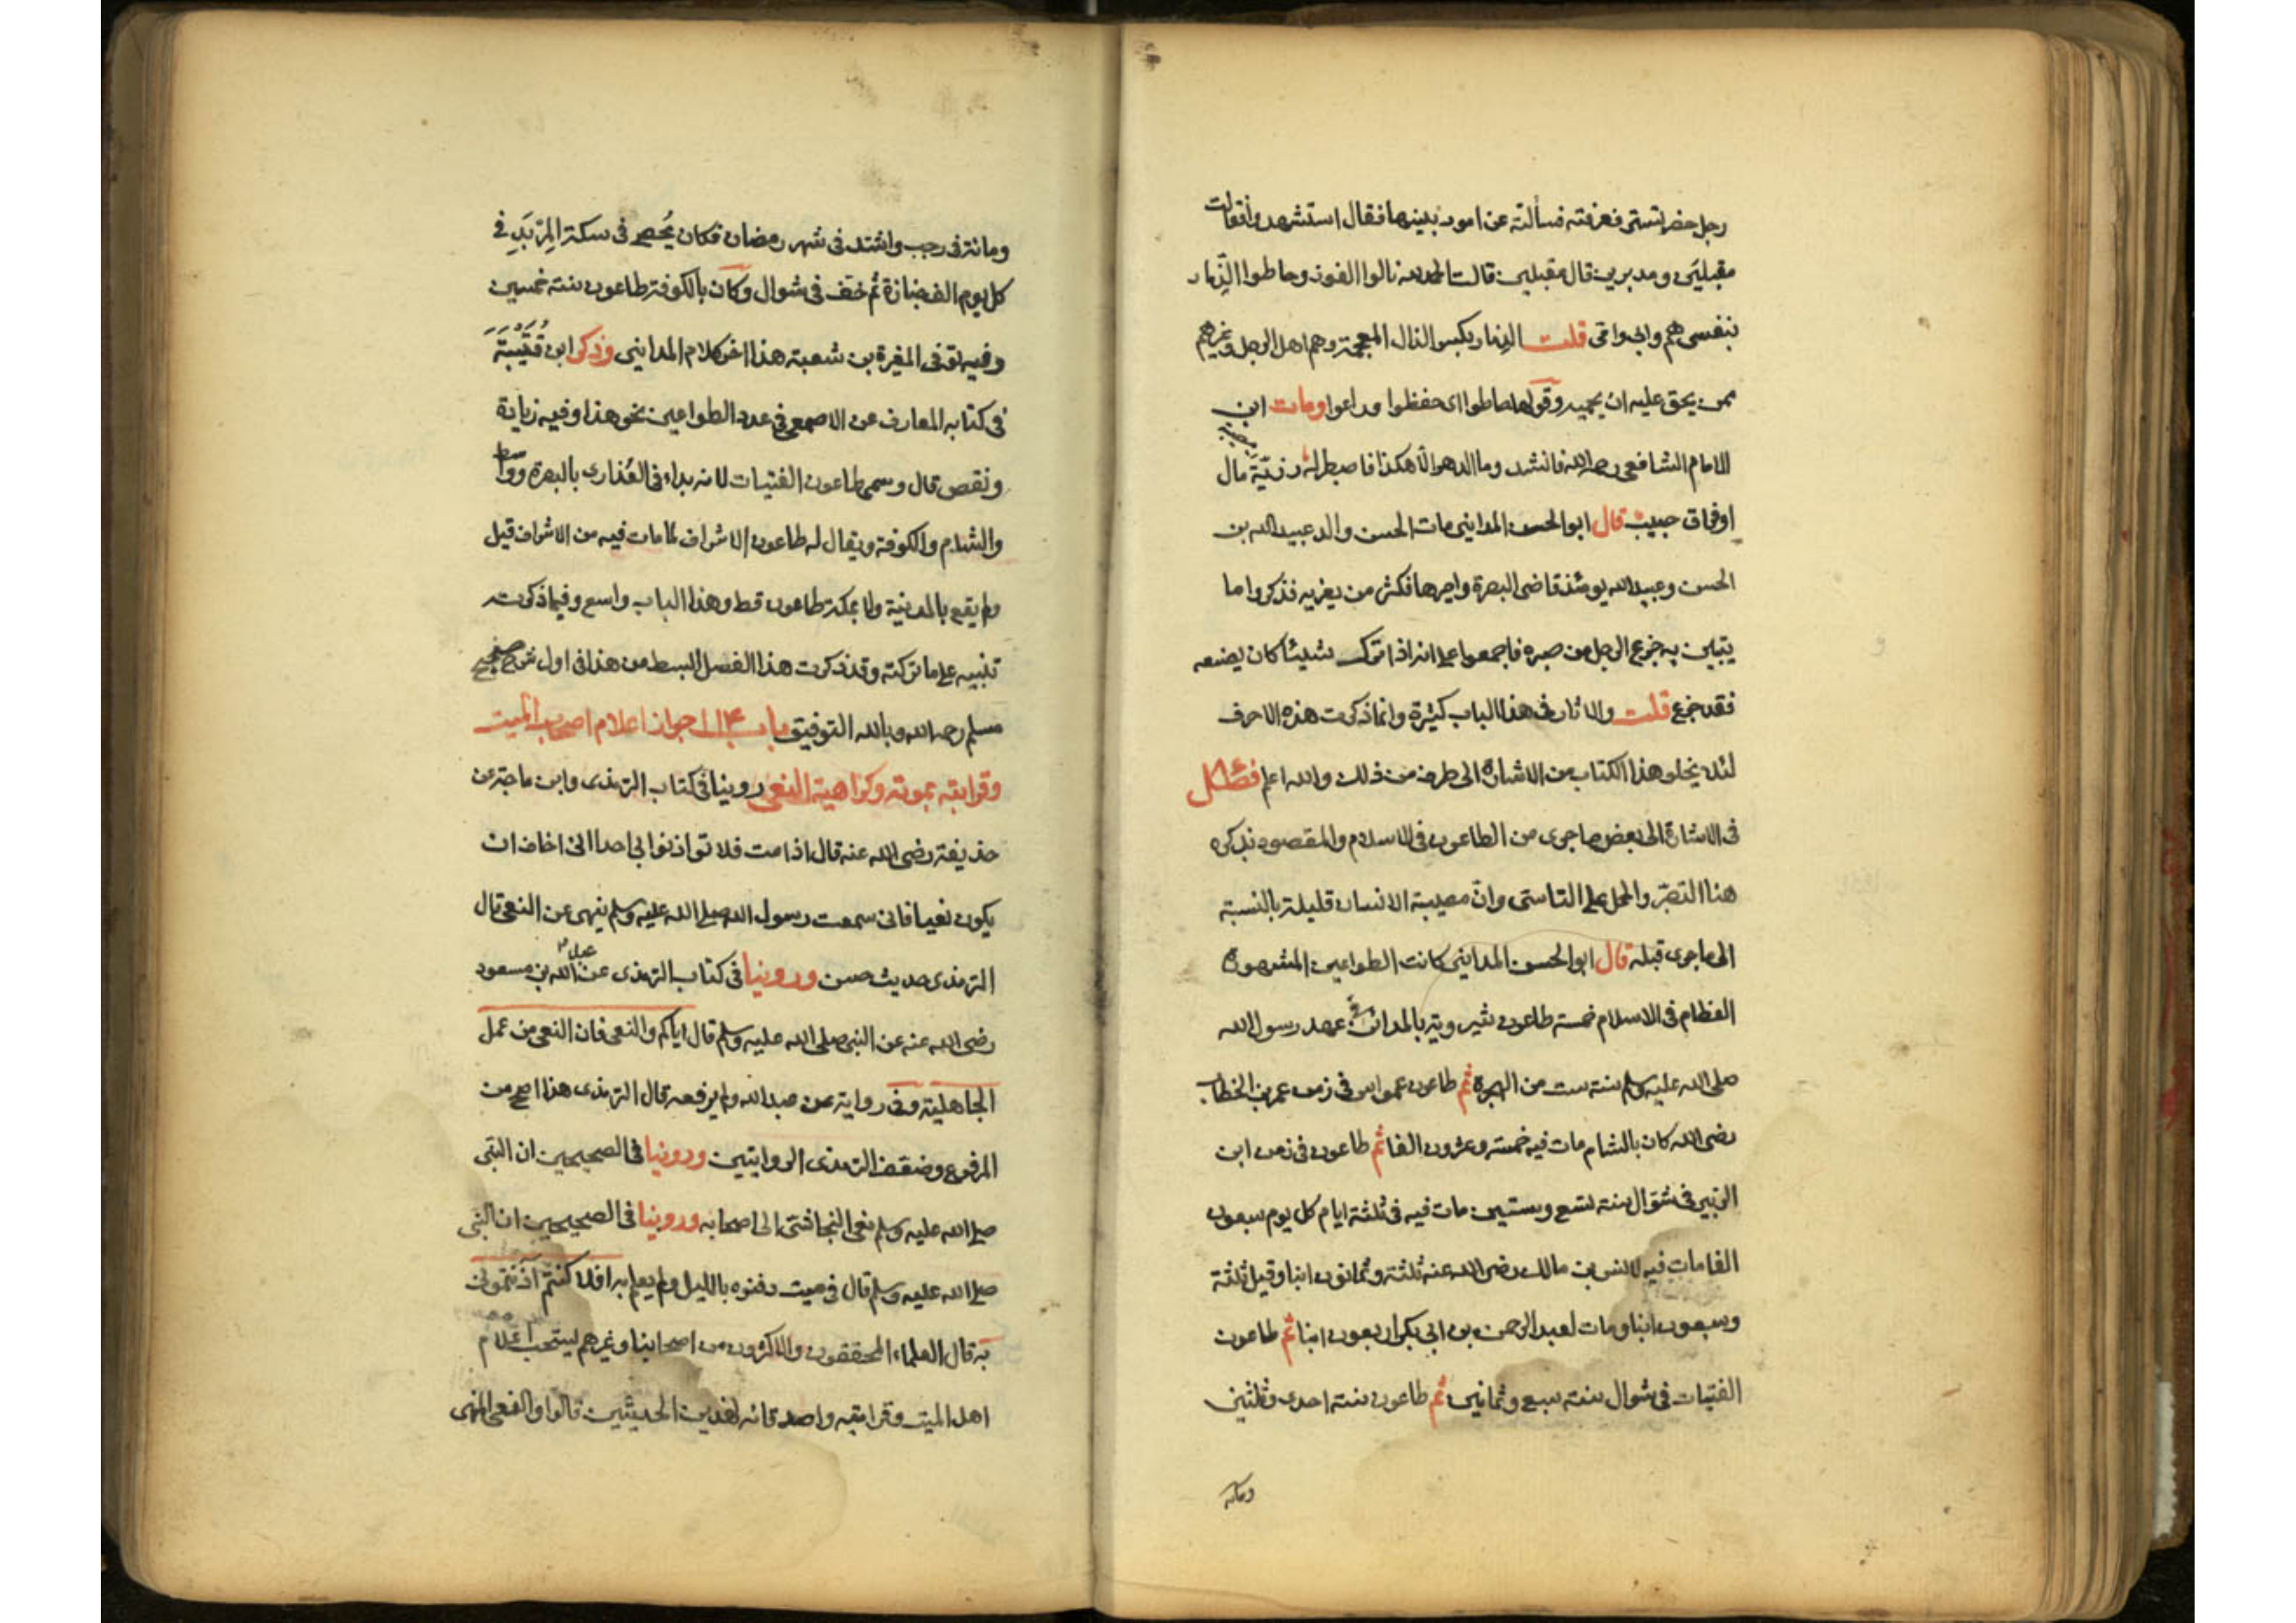 رجل حضر تستر فعرفته فسألته عن امور بنيها فقال استشهدوا فقالت
مقبلين ومدبرين قال مقبلين قالت الحمد لله نالوا الفوز وحاطوا الذِّمار
بنفسى هم وابى وامى قلت الذمار بكسر الذال المعجمة وهم اهل الرجل وغيرهم
ممن يحق عليه ان يحميه وقولها حاطوا اى حفظوا وراعوا ومات ابن
الامام الشافعى رحمه الله فانشد وما الدهر الا هكذا فاصطبر له رزيّة مال
اوفراق حبيب قال ابوالحسن المداينى مات الحسن والد عبيدالله بن
الحسن وعبيدالله يومئذ قاضى البصرة واميرها فكثر من يعزيه فذكروا ما
يتبين به جزع الرجل من صبره فاجمعوا على انه اذا ترك شيئا كان يصنعه
فقد جزع قلت والاثار فى هذا الباب كثيرة وانما ذكرت هذه الاحرف
لئلا يخلو هذا الكتاب من الاشارة الى طرف من ذلك والله اعلم فصل
فى الاشارة الى بعض ما جرى من الطاعون فى الاسلام والمقصود بذكره
هنا التصبّر والحمل على التاسى وانّ مصيبة الانسان قليلة بالنسبة
الى ما جرى قبله قال ابوالحسن المداينى كانت الطواعين المشهورة
العظام فى الاسلام خمسة طاعون شيرويه بالمدائن فى عهد رسول الله
صلى الله عليه وسلم سنة ست من الهجرة ثم طاعون عمواس فى زمن عمر بن الخطاب
رضى الله كان بالشام مات فيه خمسة وعشرون الفا ثم طاعون فى زمن ابن
الزبير فى شوّال سنة تسع وستين مات فيه فى ثلثة ايام كل يوم سبعون
الفا مات فيه لانس بن مالك رضى الله عنه ثلثة وثمانون ابنا وقيل ثلثة
وسبعون ابنا ومات لعبد الرحمن بن ابى بكر اربعون ابنا ثم طاعون
الفتيات فى شوال سنة سبع وثمانين ثم طاعون سنة احدى وثلثين
ومائة
ومائة فى رجب واشتد فى شهر رمضان فكان يُحصى فى سكة المِرْبَدِ فى
كل يوم الف جنازة ثم خفف فى شوال وكان بالكوفة طاعون سنة خمسين
وفيه توفى المغيرة بن شعبة هذا اخر كلام المداينى وذكر ابن قُتَيْبَةَ
فى كتابه المعارف عن الاصمعى فى عدد الطواعين نحو هذا وفيه زيادة
ونقص قال وسمى طاعون الفتيات لانه بداء فى العذارى بالبصرة وواسط
والشام والكوفة ويقال له طاعون الاشراف لما مات فيه من الاشراف قيل
ولم يقع بالمدينة ولا بمكة طاعون قط وهذا الباب واسع وفيما ذكرت
تنبيه على ما تركته وقد ذكرت هذا الفصل ابسط من هذا فى اول شرح صحيح
مسلم رحمه الله وبالله التوفيق باب جواز اعلام اصحاب الميت
وقرابته بموته وكراهية النعى روينا فى كتاب الترمذى وابن ماجة عن
حذيفة رضى الله عنه قال اذا مت فلا تواذنوا بى احدا انى اخاف ان
يكون نعيا فانى سمعت رسول الله صلى الله عليه وسلم ينهى عن النعى قال
الترمذى حديث حسن وروينا فى كتاب الترمذى عن عبد الله بن مسعود
رضى الله عنه عن النبى صلى الله عليه وسلم قال اياكم والنعى فان النعى من عمل
الجاهلية وفى رواية عن عبدالله ولم يرفعه قال الترمذى هذا اصح من
المرفوع وضعف الترمذى الروايتين وروينا فى الصحيحين ان النبى
صلى الله عليه وسلم نعى النجاشى الى اصحابه وروينا فى الصحيحين ان النبى
صلى الله عليه وسلم قال فى ميت دفنوه بالليل ولم يعلم به افلا كنتم آذنتمونى
به قال العلماء المحققون والاكثرون من اصحابنا وغيرهم يستحب اعلام
اهل الميت وقرابته واصدقائه لهذين الحديثين قالوا والنعى المنهى